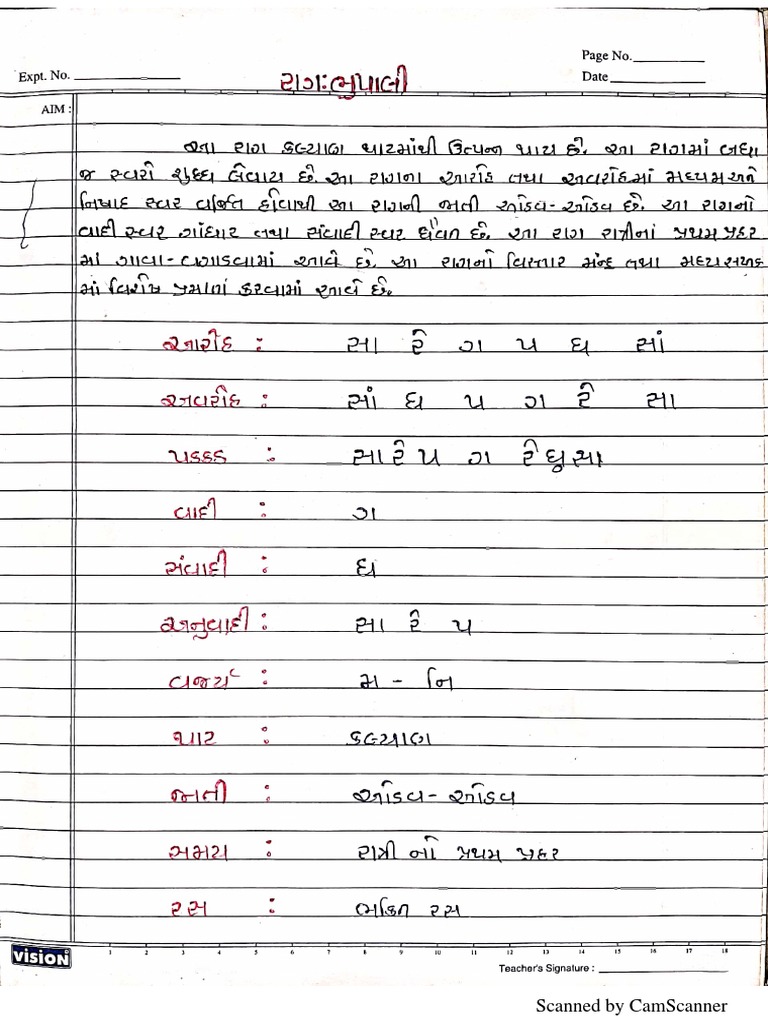 Page No.
Expt. No.
Date
રાગ:ભુપાલી
AIM :
આ રાગ કલ્યાણ થાટમાંથી ઉત્પન્ન થાય છે. આ રાગમાં બધા
જ સ્વરો શુધ્ધ લેવાય છે. આ રાગના આરોહ તથા અવરોહમાં મધ્યમ અને
નિષાદ સ્વર વર્જિત હોવાથી આ રાગની જાતી ઓડવ-ઓડવ છે. આ રાગનો
વાદી સ્વર ગાંધાર તથા સંવાદી સ્વર ધૈવત છે. આ રાગ રાત્રીનાં પ્રથમ પ્રહર
માં ગાવા-વગાડવામાં આવે છે. આ રાગનો વિસ્તાર મંન્દ્ર તથા મધ્ય સપ્તક
માં વિશેષ પ્રમાણં કરવામાં આવે છે.
આરોહ : સા રે ગ પ ધ સાં
અવરોહ : સાં ધ પ ગ રે સા
પકકડ : સા રે પ ગ રે ધુ સા
વાદી : ગ
સંવાદી : ધ
અનુવાદી : સા રે પ
વજર્ય : મ - નિ
થાટ : કલ્યાણ
જાતી : ઓડવ- ઓડવ
સમય : રાત્રી નો પ્રથમ પ્રહર
રસ : ભકિત રસ
vision 1 2 3 4 5 6 7 8 9 10 11 12 13 14 15 16 17 18
Teacher's Signature :
Scanned by CamScanner